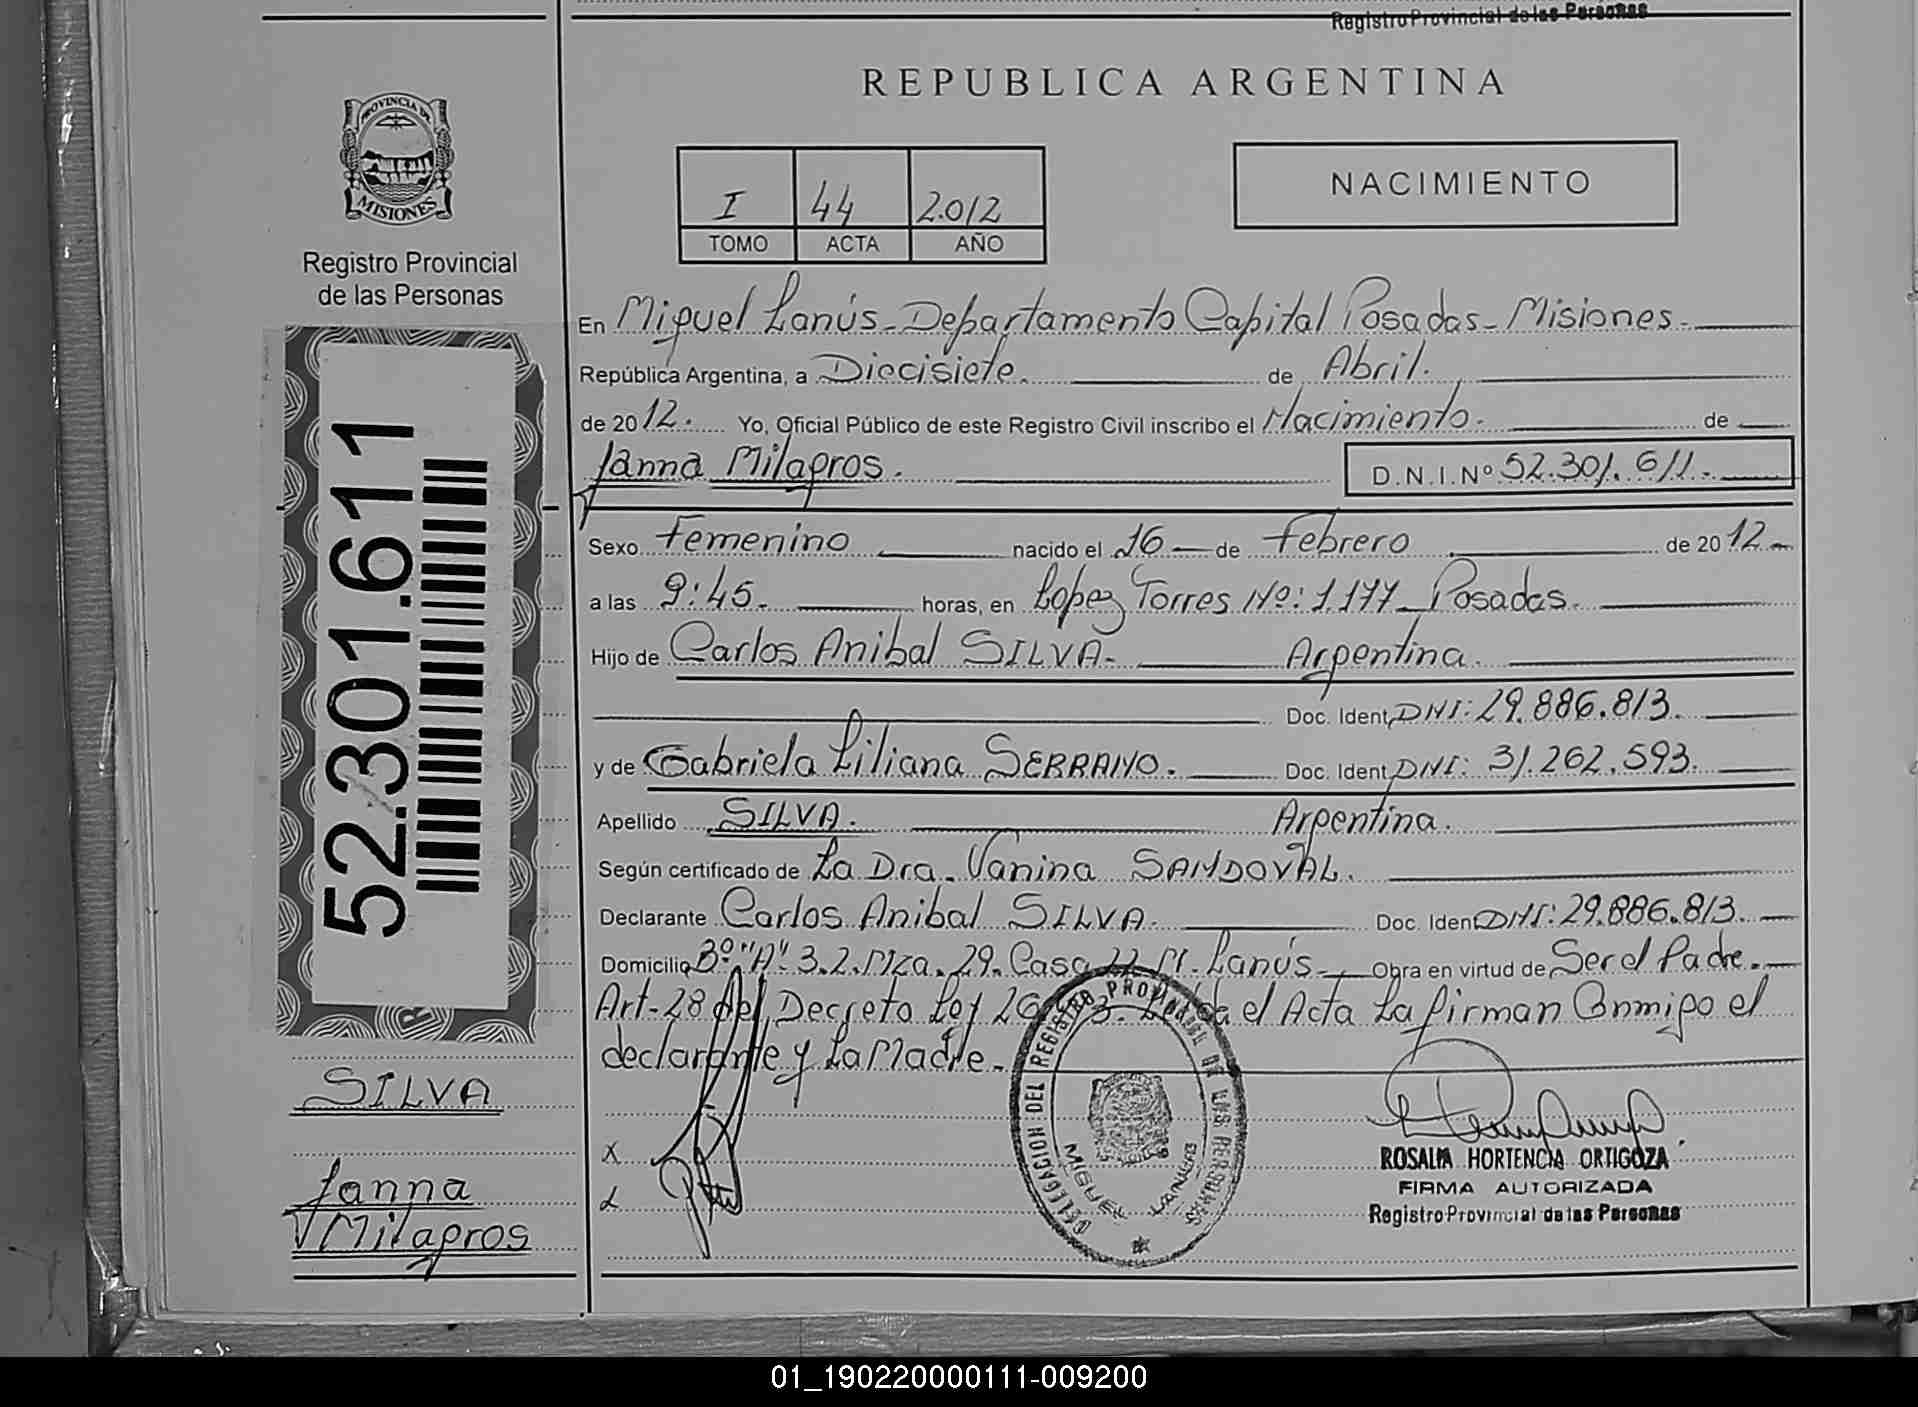 Registro Provincial de las Personas
REPUBLICA ARGENTINA
PROVINCIA DE
MISIONES
Registro Provincial
de las Personas
I 44 2.012
TOMO ACTA AÑO
NACIMIENTO
En Miguel Lanús - Departamento Capital Posadas - Misiones.
República Argentina, a Diecisiete. de Abril.
de 2012. Yo, Oficial Público de este Registro Civil inscribo el Nacimiento. de
Janna Milagros. D.N.I.Nº 52.301.611.-
52.301.611
Sexo Femenino nacido el 16 de Febrero de 2012.-
a las 9:45. horas, en Lopez Torres Nº: 1.177 - Posadas.
Hijo de Carlos Anibal SILVA. Argentina.
Doc. Ident. DNI: 29.886.813.
y de Gabriela Liliana SERRANO. Doc. Ident. DNI: 31.262.593.
Apellido SILVA. Argentina.
Según certificado de La Dra. Vanina SANDOVAL.
Declarante Carlos Anibal SILVA. Doc. Ident. DNI: 29.886.813.
Domicilio Bº "A" 3.2. Mza. 29. Casa 22 M. Lanús - Obra en virtud de Ser el Padre.
Art-28 del Decreto Ley el Acta La firman Conmigo el
declarante y La Madre.
SILVA
Janna
Milagros
X
DELEGACION DEL REGISTRO PROVINCIAL DE LAS PERSONAS
MIGUEL LANUS
ROSALIA HORTENCIA ORTIGOZA
FIRMA AUTORIZADA
Registro Provincial de las Personas
01_190220000111-009200